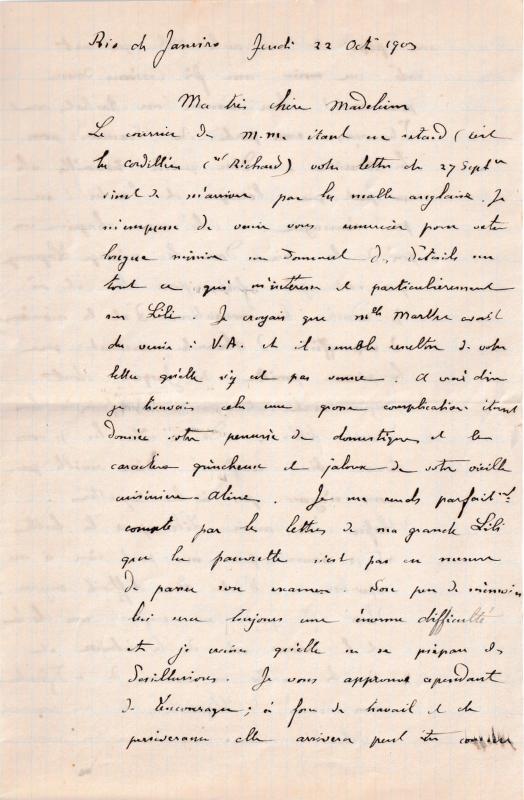 Rio de Janeiro Jeudi 22 Octe 1903
Ma très chère Madeleine
Le courrier des M.M. étant en retard (c'est
la cordillière (Ct Richard) votre lettre du 27 Septbre
vient de m'arriver par la malle anglaise. Je
m'empresse de venir vous remercier pour cette
longue missive me donnant des détails sur
tout ce qui m'intéresse et particulièrement
sur Lili. Je croyais que Melle Marthe avait
du venir à V.A. et il semble résulter de votre
lettre qu'elle n'y est pas venue. A vrai dire
je trouvais cela une grosse complication étant
donnée votre penurie de domestiques et le
caractère grincheux et jaloux de votre vieille
cuisinière Aline. Je me rends parfaitmt
compte par les lettres de ma grande Lili
que la pauvrette n'est pas en mesure
de passer son examen. Son peu de mémoire
lui sera toujours une énorme difficulté
et je crains qu'elle ne se prépare des
désillusions. Je vous approuve cependant
de l'encourager; à force de travail et de
perséverance elle arrivera peut être